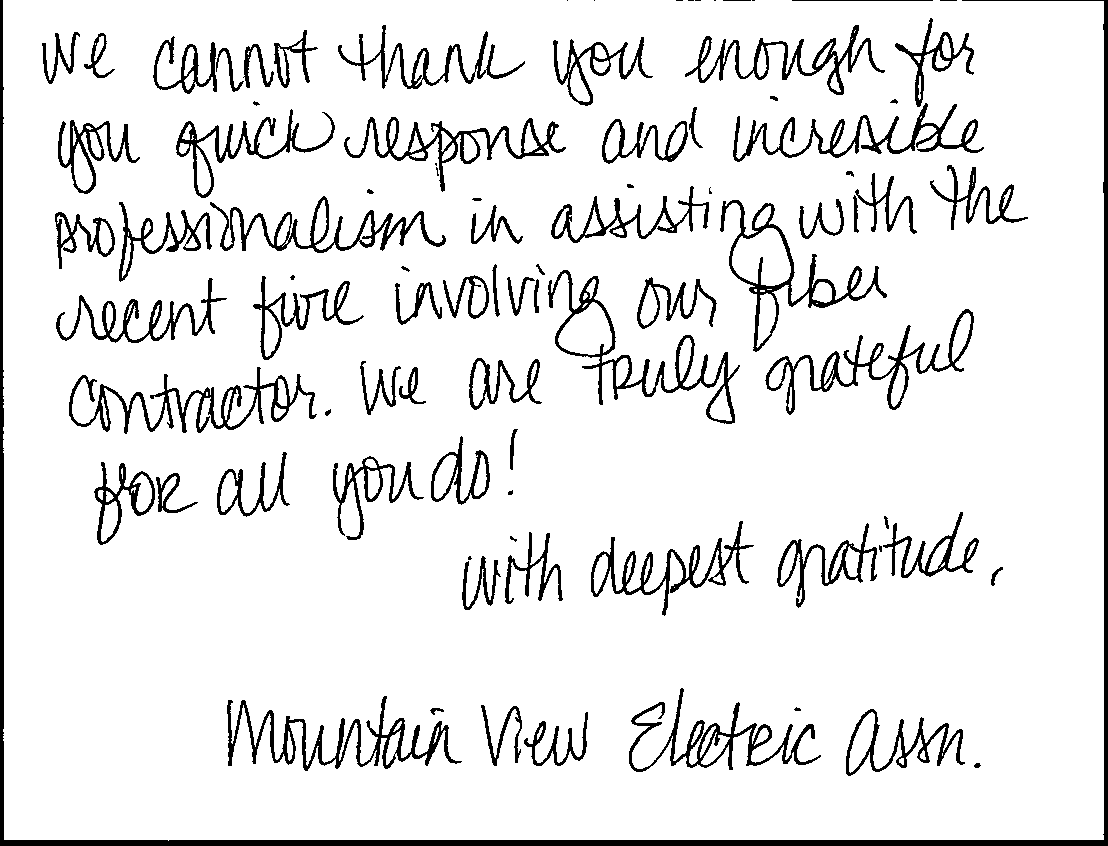 We cannot thank you enough for
you quick response and incresible
professionalism in assisting with the
recent fire involving our fiber
contractor. We are truly grateful
for all you do!
with deepest gratitude,
Mountain View Electric Assn.